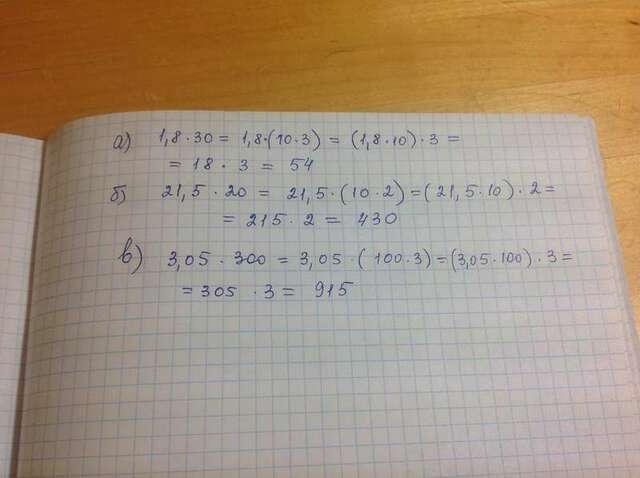 а) 1,8·30 = 1,8·(10·3) = (1,8·10)·3 =
= 18 · 3 = 54
б) 21,5 · 20 = 21,5·(10·2) = (21,5·10)·2 =
= 215 · 2 = 430
в) 3,05 · 300 = 3,05 ·(100·3) = (3,05·100)·3 =
= 305 · 3 = 915